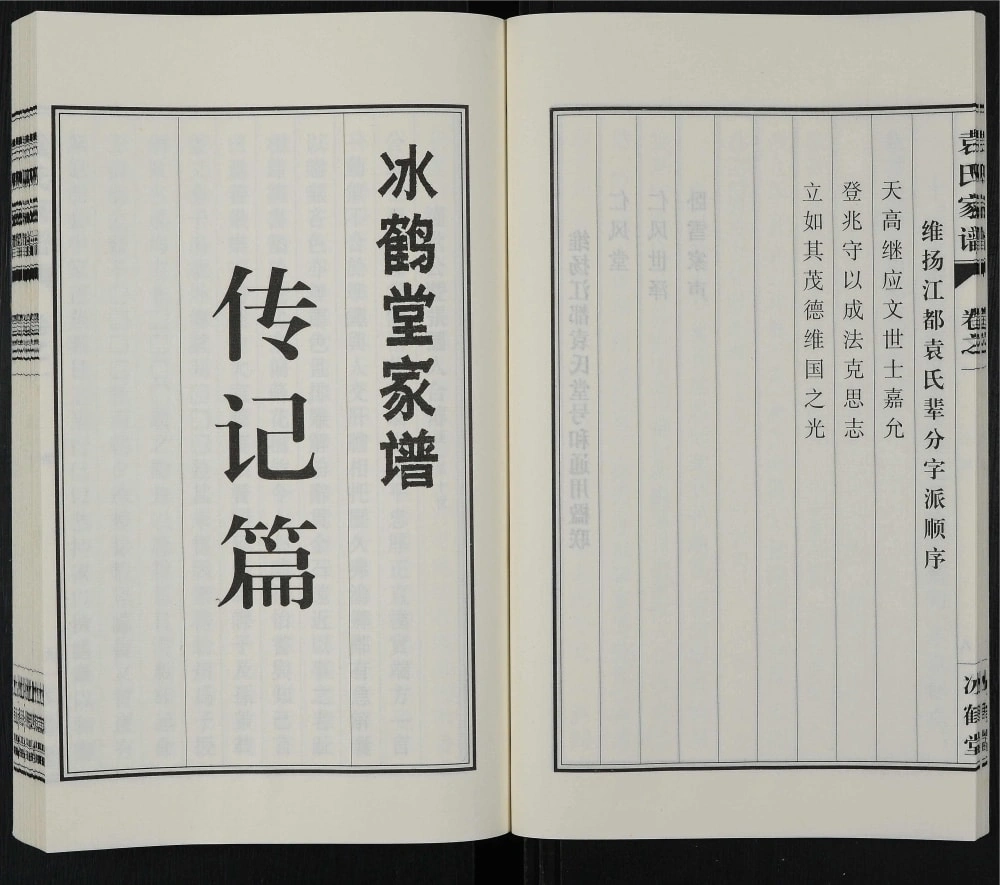 袁氏家谱
卷之一
冰鹤堂
维扬江都袁氏辈分字派顺序
天高继应文世士嘉允
登兆守以成法克思志
立如其茂德维国之光
冰鹤堂家谱
传记篇